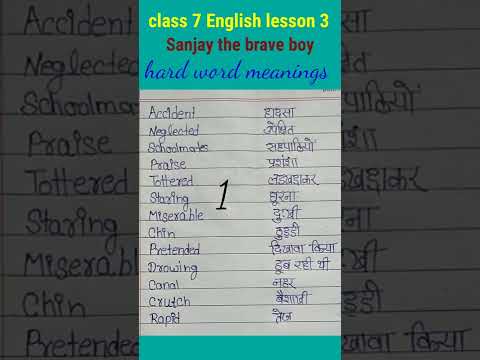 class 7 English lesson 3
Sanjay the brave boy
hard word meanings
Accident हादसा
Neglected उपेक्षित
Schoolmates सहपाठियों
Praise प्रशंशा
Tottered लड़खड़ाकर
Staring घूरना
1
Miserable दुःखी
Chin ठुड्डी
Pretended दिखावा किया
Drowing डूब रही थी
Canal नहर
Crutch बैशाखी
Rapid तेज